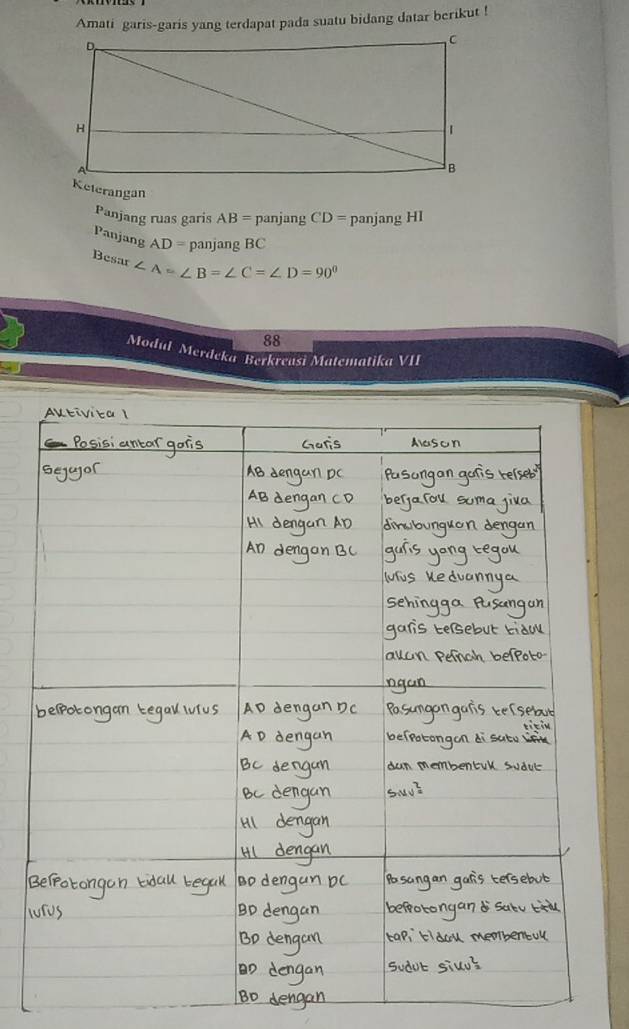 Amati garis-garis yang terdapat pada suatu bidang datar berikut !
D C
H I
A B
Keterangan
Panjang ruas garis AB = panjang CD = panjang HI
Panjang AD = panjang BC
Besar ∠ A = ∠ B = ∠ C = ∠ D = 90⁰
88
Modul Merdeka Berkreasi Matematika VII
Aktivita 1
Posisi antar garis Garis Alasan
Sejajar AB dengan DC Pasangan garis terseb
AB dengan CD berjarak sama jika
HI dengan AD dihubungkan dengan
AD dengan BC garis yang tegak
lurus keduannya
Sehingga Pasangan
garis tersebut tidak
akan Pernah berPoto-
ngan
berPotongan tegak lurus AD dengan DC Pasangan garis tersebut
titik
AD dengan berPotongan di satu
BC dengan dan membentuk sudut
BC dengan siku²
HI dengan
HI dengan
BerPotongan tidak tegak BD dengan DC Pasangan garis tersebut
lurus BD dengan berPotongan di satu titik
BD dengan taPi tidak membentuk
BD dengan Sudut siku²
BD dengan